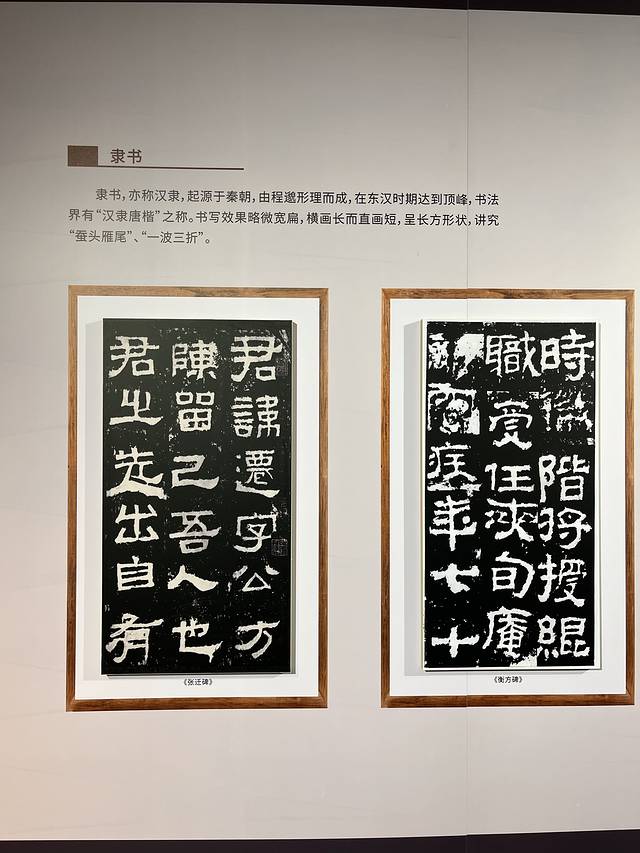 隶书
隶书，亦称汉隶，起源于秦朝，由程邈形理而成，在东汉时期达到顶峰，书法
界有“汉隶唐楷”之称。书写效果略微宽扁，横画长而直画短，呈长方形状，讲究
“蚕头雁尾”、“一波三折”。
君諱遷字公方
陳留己吾人也
君之先出自有
《张迁碑》
時
階將授緄
職受任浹旬菴
疾年七十
《衡方碑》